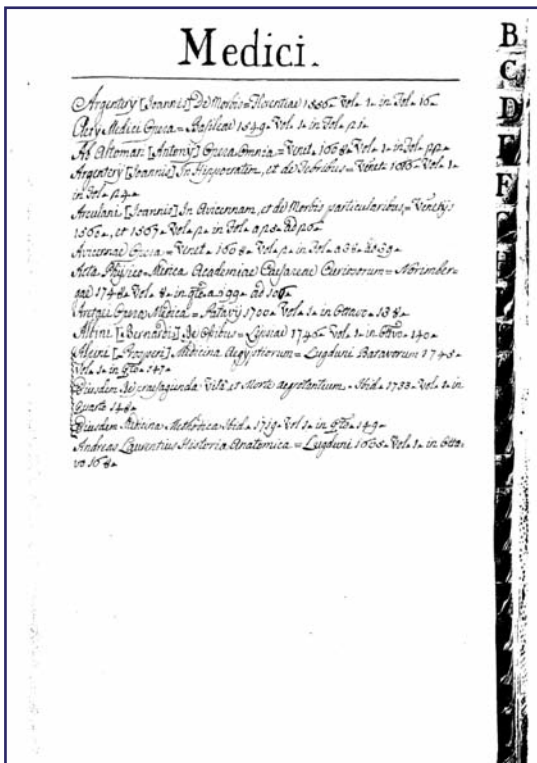 Medici.
Argenterij [Joannis] De Morbis = Florentiae 1556. Vol. 1. in Fol. 16.
Medici Opera = Basileae 1549. Vol. 1. in Fol. 21.
Ab Altomari [Antonij] Opera Omnia = Venet. Vol. 1. in Fol. 22.
Argenterij [Joannis] In Hippocratem, et de Febribus = Venet. Vol. 1.
in Fol. 24.
Arculani [Joannis] In Avicennam, et de Morbis particularibus = Venetijs
et 1567. Vol. 2. in Fol. a 25. ad 26.
Avicennae Opera = Venet. 1608. Vol. 2. in Fol. a 38. ad 39.
Acta Physico-Medica Academiae Caesareae Curiosorum = Norimber-
gae 1748. Vol. 8. in qto. a 99. ad 106.
Opera Medica = Patavij 1700. Vol. 1. in Ottavo. 138.
Albini [Bernardi] De Ossibus = Lipsiae 1746. Vol. 1. in Ottvo. 140.
Alpini [Prosperi] Medicina Aegyptiorum = Lugduni Batavorum 1745.
Vol. 1. in Qto. 147.
Eiusdem De praesagienda Vita, et Morte aegrotantium. Ibid. 1733. Vol. 1. in
Quarto 148.
Eiusdem Medicina Methodica Ibid. 1719. Vol. 1. in Qto. 149.
Andreas Laurentius Historia Anatomica = Lugduni 1605. Vol. 1. in Otta-
vo 168.
B
C
D
E
F